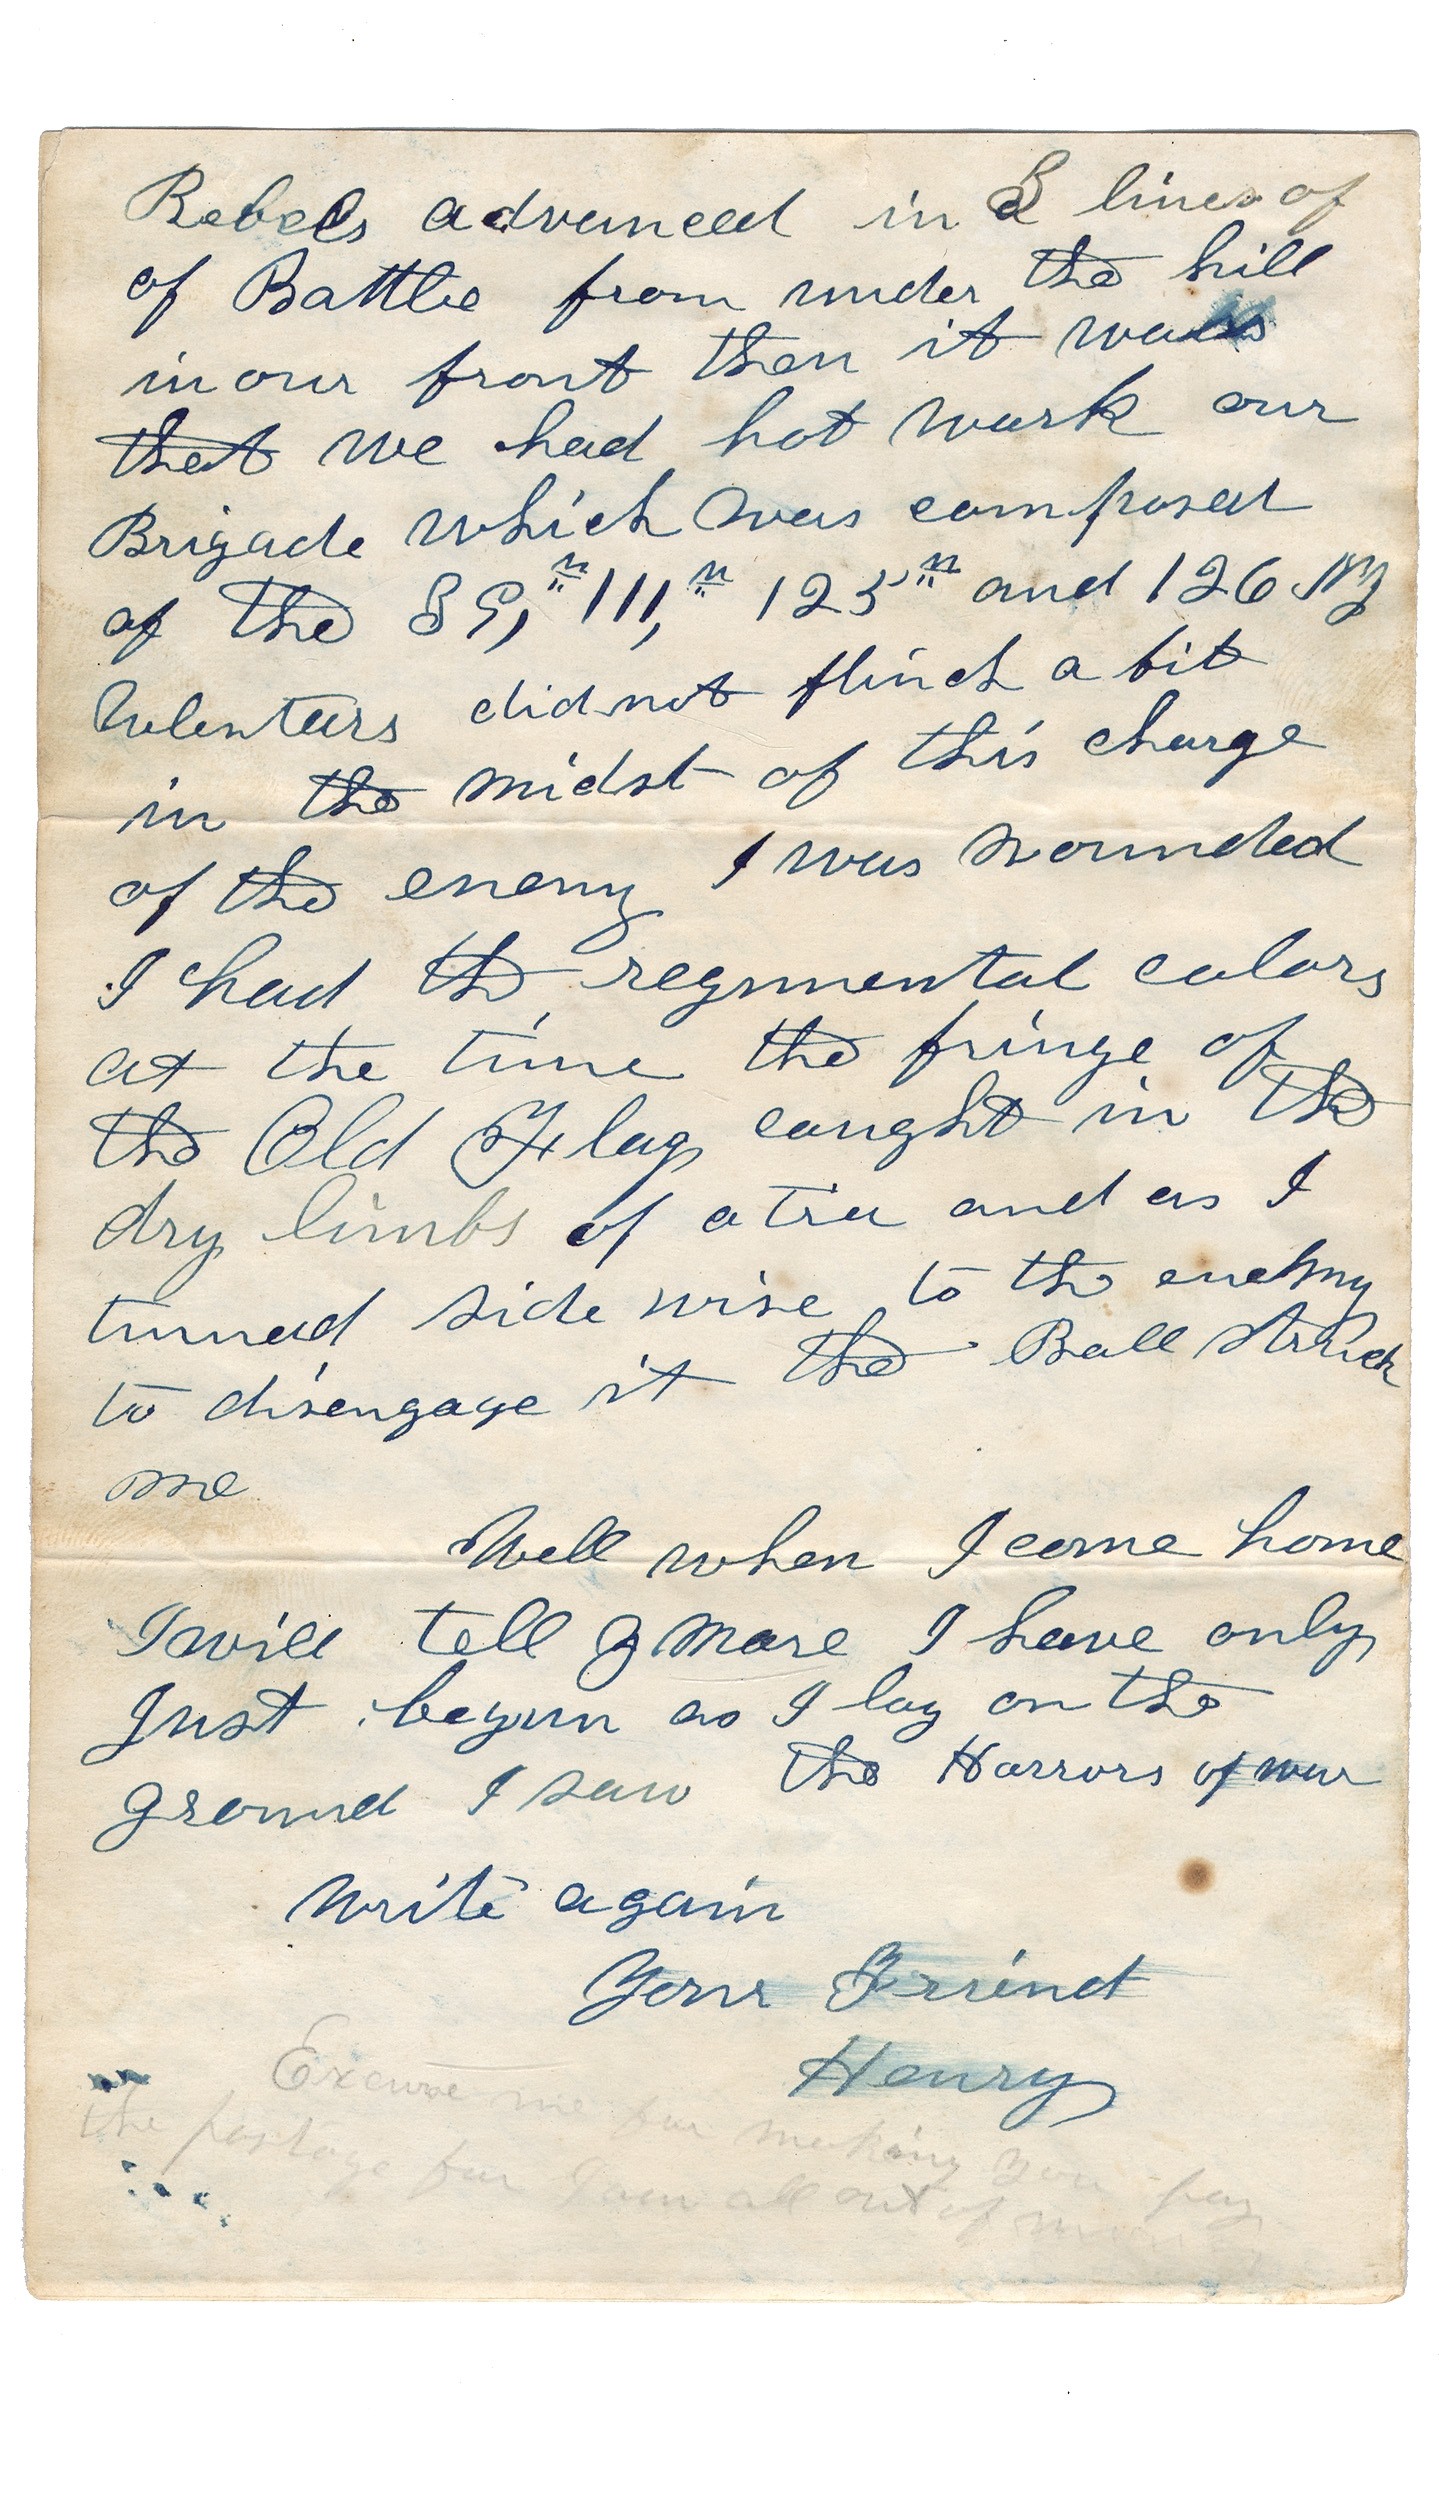 Rebels advanced in 3 lines of
of Battle from under the hill
in our front then it was
that we had hot work our
Brigade which was composed
of the 39,th 111,th 125th and 126 NY
Volenteers did not flinch a bit
in the midst of this charge
of the enemy I was wounded
I had the regmental colors
at the time the fringe of
the Old Flag caught in the
dry limbs of a tree and as I
turned side wise to the enemy
to disengage it the Ball struck
me
Well when I come home
I will tell y more I have only
Just begun as I lay on the
ground I saw the Horrors of war
write again
Your Friend
Henry
Excuse me for making you pay
the postage for I am all out of money